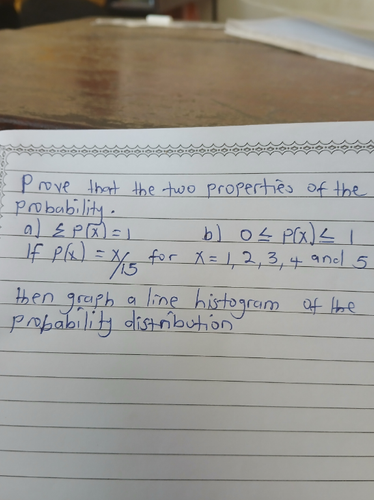 Prove that the two properties of the
probability.
a) Σ P(x) = 1 b) 0 ≤ P(x) ≤ 1
If P(x) = x/15 for x = 1, 2, 3, 4 and 5
then graph a line histogram of the
probability distribution